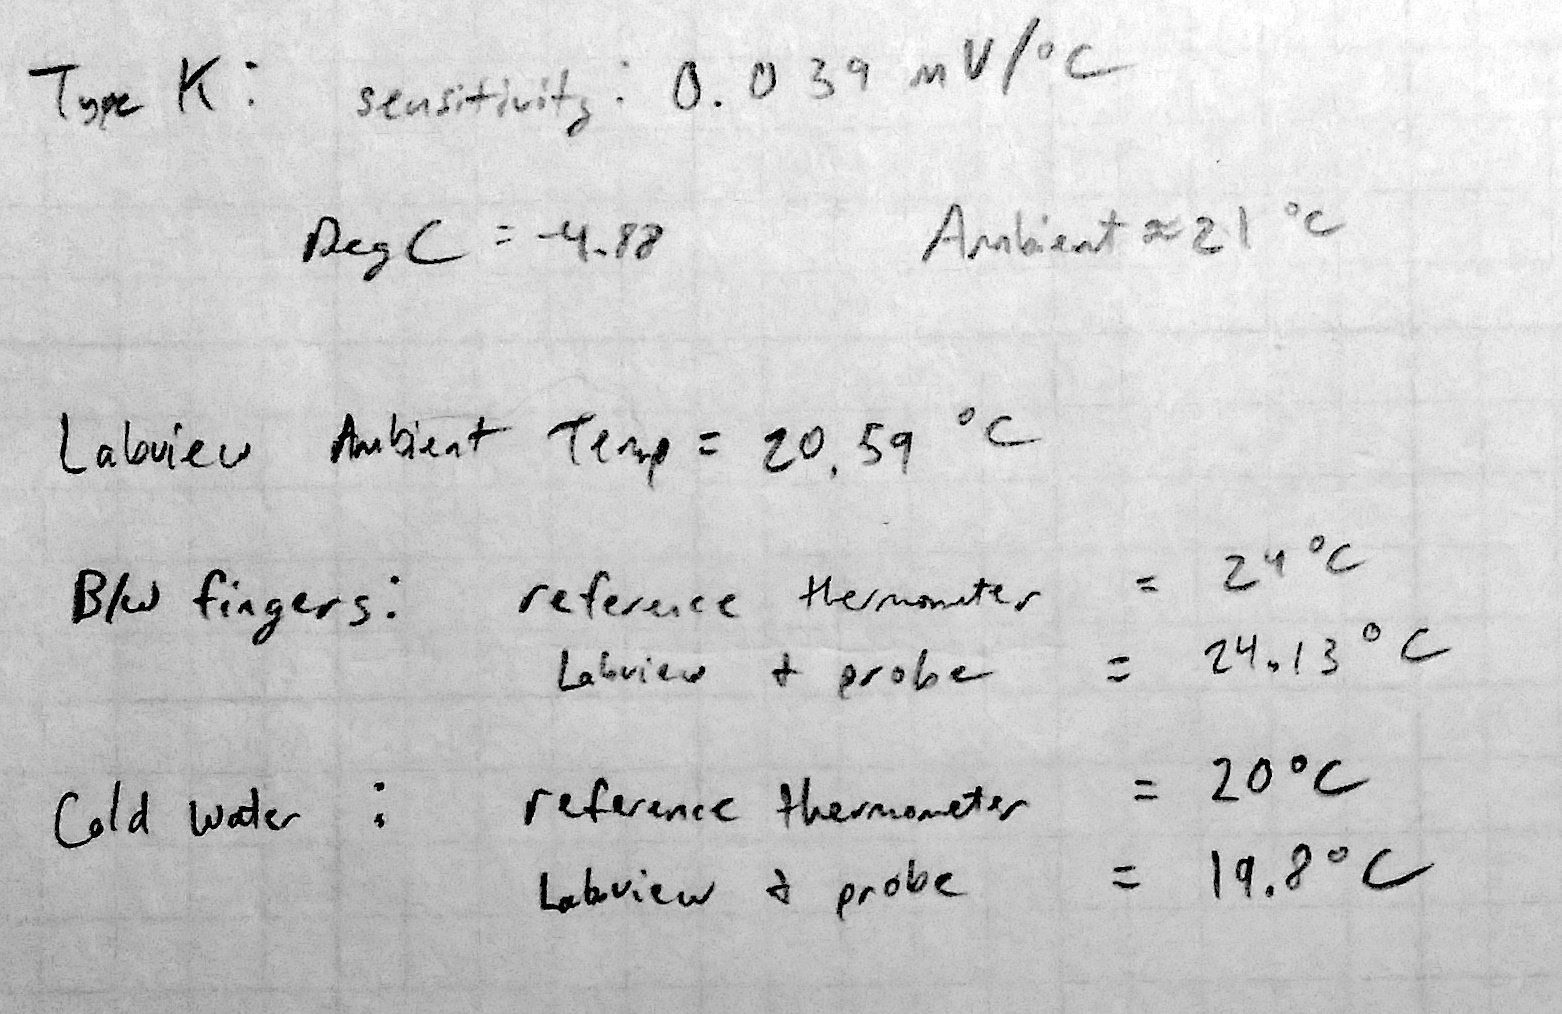 Type K: sensitivity: 0.039 mV/°C
Deg C = -4.88 Ambient ≈ 21 °C
Labview Ambient Temp = 20.59 °C
B/w fingers: reference thermometer = 24 °C
Labview & probe = 24.13 °C
Cold water : reference thermometer = 20 °C
Labview & probe = 19.8 °C